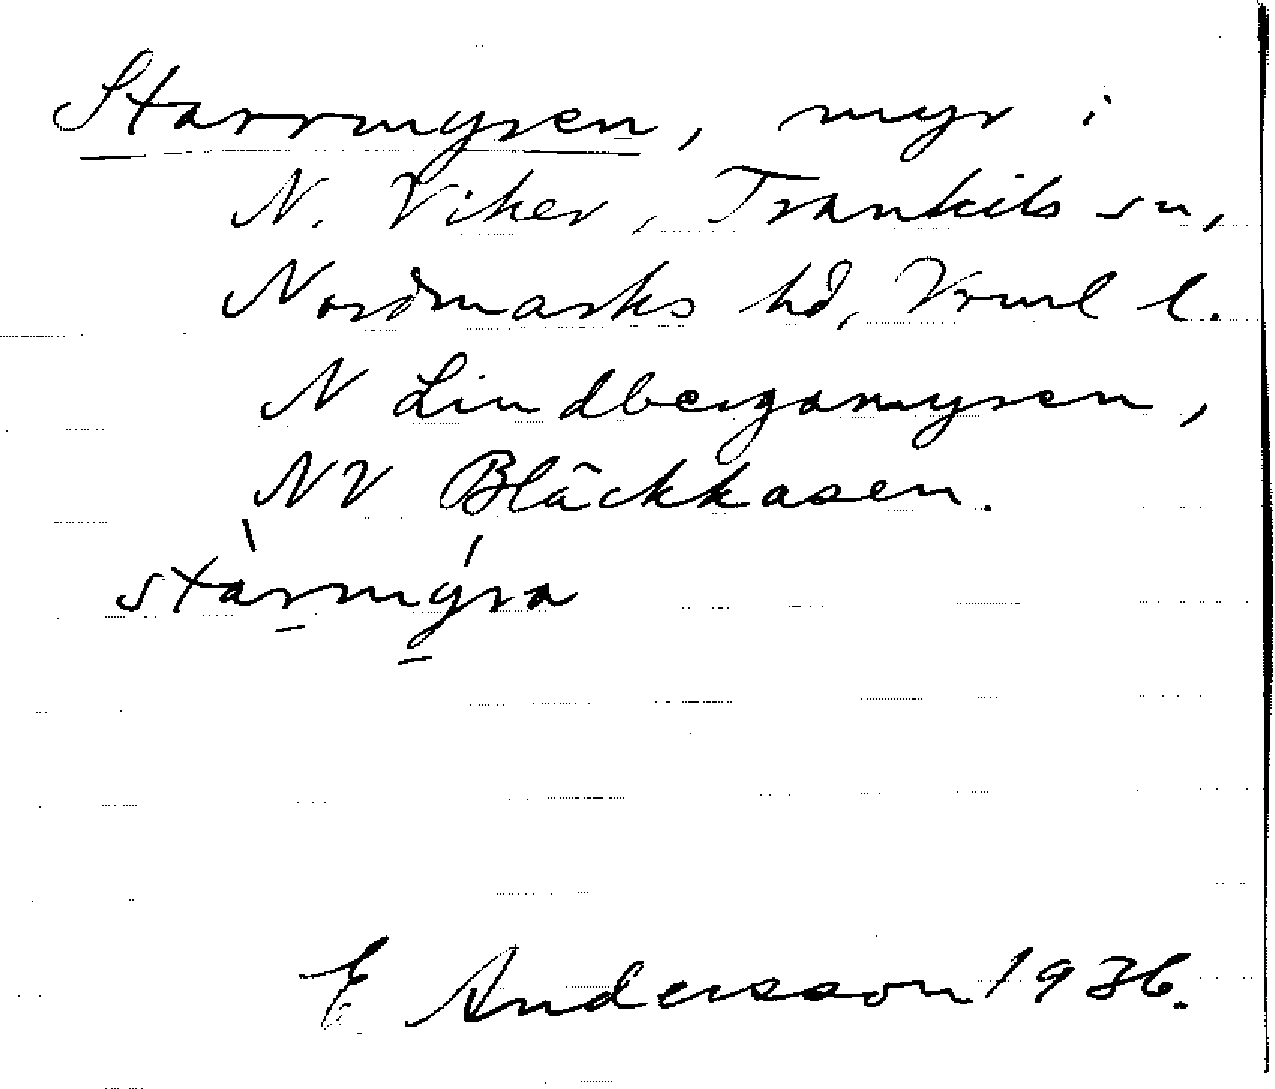 Starrmyren, myr i
N. Viker, Trankils sn,
Nordmarks hd, Vrml l.
N Lindbergsmyren,
NV Bläckkasen.
stàrmýra
E Andersson 1936.